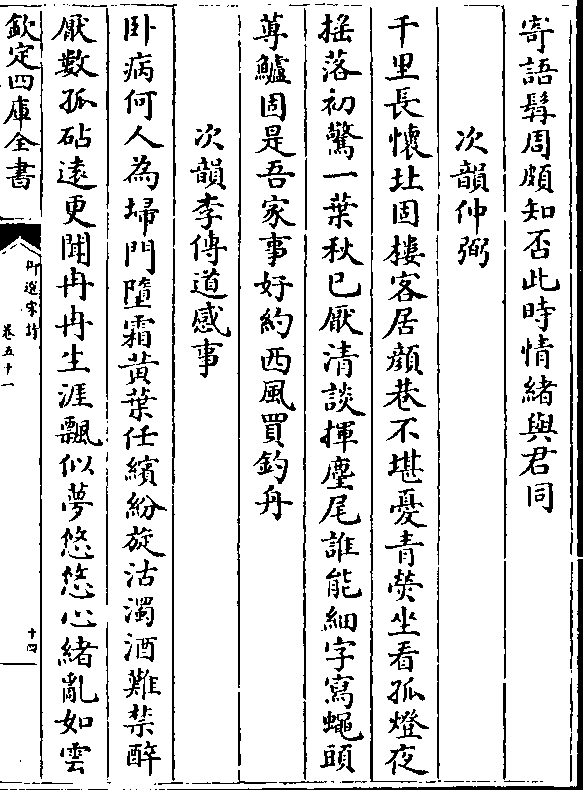 寄語髯周頗知否此時情緒與君同
次韻仲弼
千里長懷北固樓客居顔巷不堪憂青熒坐看孤燈夜
揺落初驚一葉秋已厭清談揮麈尾誰能細字寫蠅頭
蓴鱸固是吾家事好約西風買釣舟
次韻李傳道感事
卧病何人為埽門墮霜黃葉任繽紛旋沽濁酒難禁醉
厭數孤砧逺更聞冉冉生涯飄似夢悠悠心緒亂如雲
欽定四庫全書
御選宋詩
卷五十一
十四